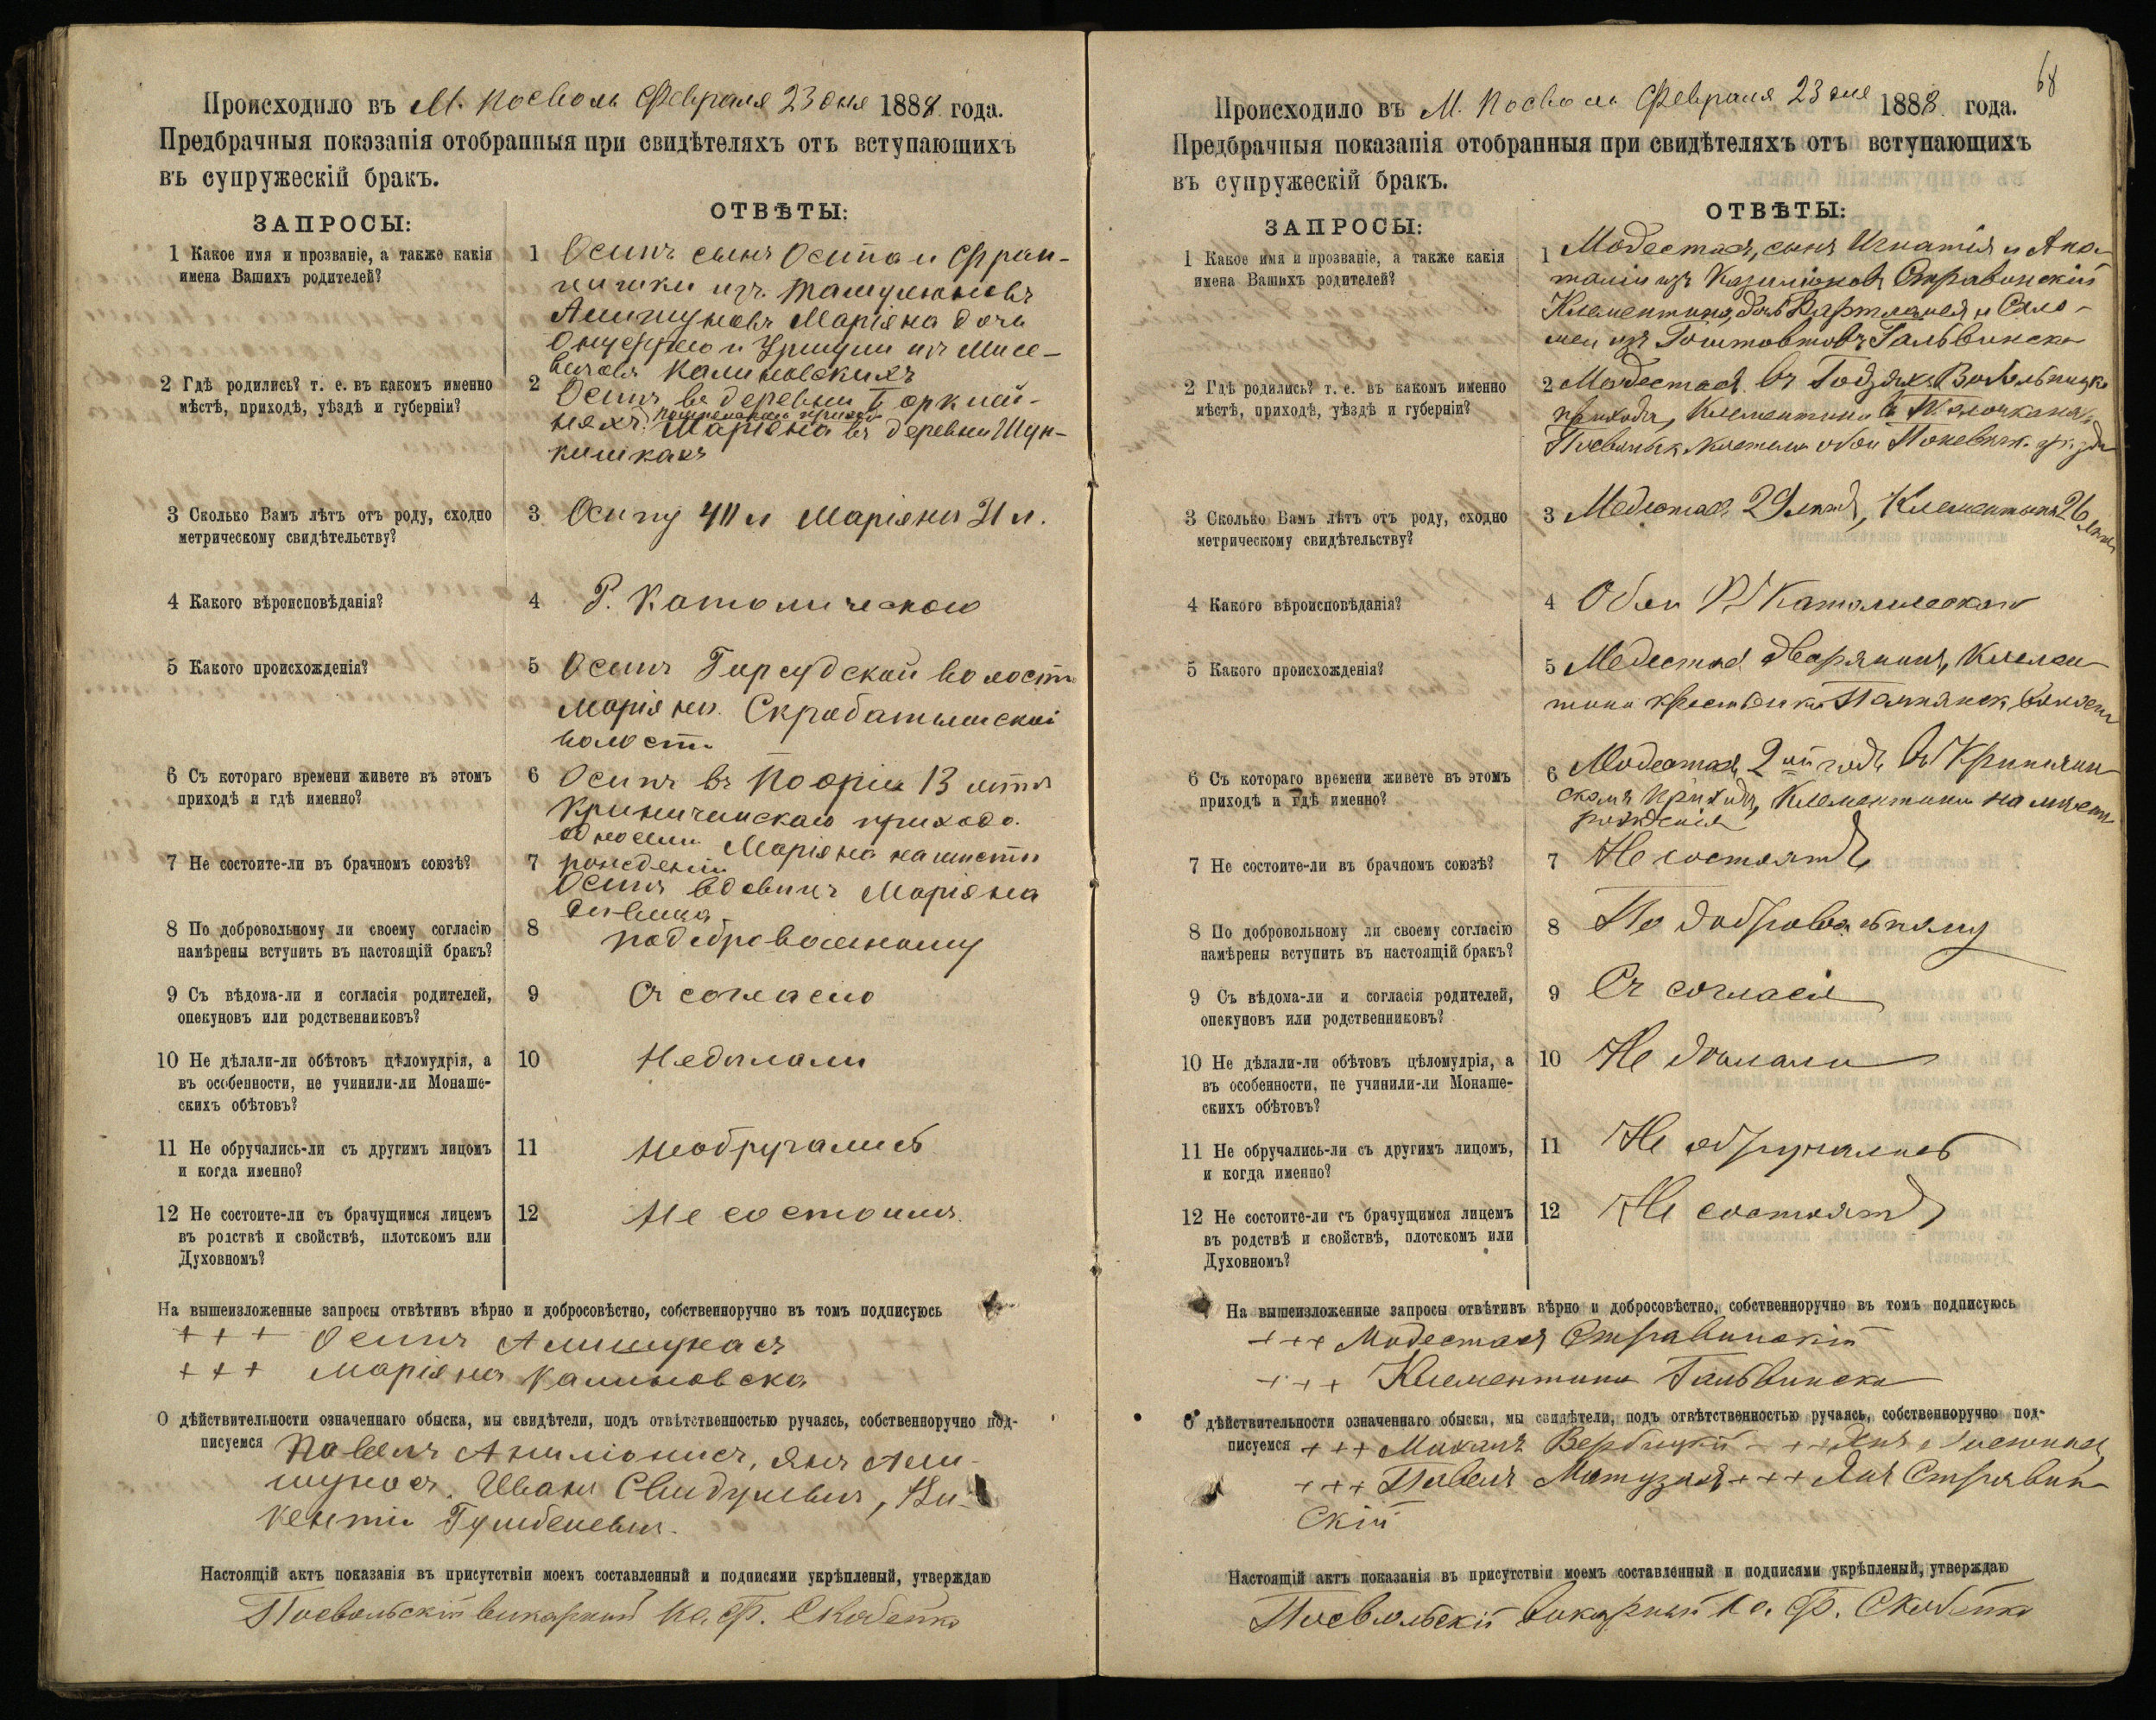 Происходило въ М. Посволь Февраля 23 дня 1888 года.
Предбрачныя показанія отобранныя при свидѣтеляхъ отъ вступающихъ
въ супружескій бракъ.
ЗАПРОСЫ:
ОТВѢТЫ:
1 Какое имя и прозваніе, а также какія
имена Вашихъ родителей?
1 Осипъ сынъ Осипа и Фран-
цишки изъ
Марiяна дочь
и изъ Мисе-
вичовъ Калиновскихъ
2 Гдѣ родились? т. е. въ какомъ именно
мѣстѣ, приходѣ, уѣздѣ и губерніи?
2 Осипъ въ деревни
Маріяна въ деревни Шун-
кишкахъ
3 Сколько Вамъ лѣтъ отъ роду, сходно
метрическому свидѣтельству?
3 Осипу л Маріяны 31 л.
4 Какого вѣроисповѣданія?
4 Р. Католическою
5 Какого происхожденія?
5 Осипъ волости
Маріяны
волости
6 Съ котораго времени живете въ этомъ
приходѣ и гдѣ именно?
6 Осипъ въ 13 лѣтъ
Криничинскаго прихода.
Маріяна на мисти
7 Не состоите-ли въ брачномъ союзѣ?
7 рождении
Осипъ вдовицъ Маріяна
дивица
8 По добровольному ли своему согласію
намѣрены вступить въ настоящій бракъ?
8 подобровольному
9 Съ вѣдома-ли и согласія родителей,
опекуновъ или родственниковъ?
9 Съ согласію
10 Не дѣлали-ли обѣтовъ цѣломудрія, а
въ особенности, не учинили-ли Монаше-
скихъ обѣтовъ?
10 Недилали
11 Не обручались-ли съ другимъ лицомъ
и когда именно?
11 Необручались
12 Не состоите-ли съ брачущимся лицемъ
въ родствѣ и свойствѣ, плотскомъ или
Духовномъ?
12 Не состоим
На вышеизложенные запросы отвѣтивъ вѣрно и добросовѣстно, собственноручно въ томъ подписуюсь
+ + + Осипъ
+ + + Маріяна Калиновска
О дѣйствительности означеннаго обыска, мы свидѣтели, подъ отвѣтственностью ручаясь, собственноручно под-
писуемся Павелъ Янъ
Иванъ Ви-
кентій
Настоящій актъ показанія въ присутствіи моемъ составленный и подписями укрѣпленый, утверждаю
Посвольскій викарный Кс. Ф. Скабейко
68
Происходило въ М. Посволь Февраля 23 дня 1888 года.
Предбрачныя показанія отобранныя при свидѣтеляхъ отъ вступающихъ
въ супружескій бракъ.
ЗАПРОСЫ:
ОТВѢТЫ:
1 Какое имя и прозваніе, а также какія
имена Вашихъ родителей?
1 Модестасъ, сынъ Игнатія и Ана-
таліи изъ Стравинскій
Клементина, дочь Вартломея и Сало-
меи изъ Гальвинска
2 Гдѣ родились? т. е. въ какомъ именно
мѣстѣ, приходѣ, уѣздѣ и губерніи?
2 Модестасъ въ
прихода, Клементина въ
обои
3 Сколько Вамъ лѣтъ отъ роду, сходно
метрическому свидѣтельству?
3 Модестас. 29 лѣтъ, Клементына 26 лѣтъ
4 Какого вѣроисповѣданія?
4 Обои Р Католическаго
5 Какого происхожденія?
5 Модестас дворянинъ, Клемен-
тина крестьянка волости
6 Съ котораго времени живете въ этомъ
приходѣ и гдѣ именно?
6 Модестасъ 2ой годъ въ Криничин-
скомъ приходѣ, Клементина на мѣсти
рожденія
7 Не состоите-ли въ брачномъ союзѣ?
7 Не состоятъ
8 По добровольному ли своему согласію
намѣрены вступить въ настоящій бракъ?
8 По добровольному
9 Съ вѣдома-ли и согласія родителей,
опекуновъ или родственниковъ?
9 Съ согласія
10 Не дѣлали-ли обѣтовъ цѣломудрія, а
въ особенности, не учинили-ли Монаше-
скихъ обѣтовъ?
10 Не дѣлали
11 Не обручались-ли съ другимъ лицомъ,
и когда именно?
11 Не обручались
12 Не состоите-ли съ брачущимся лицемъ
въ родствѣ и свойствѣ, плотскомъ или
Духовномъ?
12 Не состоятъ
На вышеизложенные запросы отвѣтивъ вѣрно и добросовѣстно, собственноручно въ томъ подписуюсь
+++ Модестасъ Стравинскій
+++ Клементина Гальвинска
О дѣйствительности означеннаго обыска, мы свидѣтели, подъ отвѣтственностью ручаясь, собственноручно под-
писуемся +++ Михалъ Вербицкій +++ Янъ
+++ Павелъ Матузасъ +++ Янъ Стравин-
скій
Настоящій актъ показанія въ присутствіи моемъ составленный и подписями укрѣпленый, утверждаю
Посвольскій викарный Кс. Ф. Скабейко